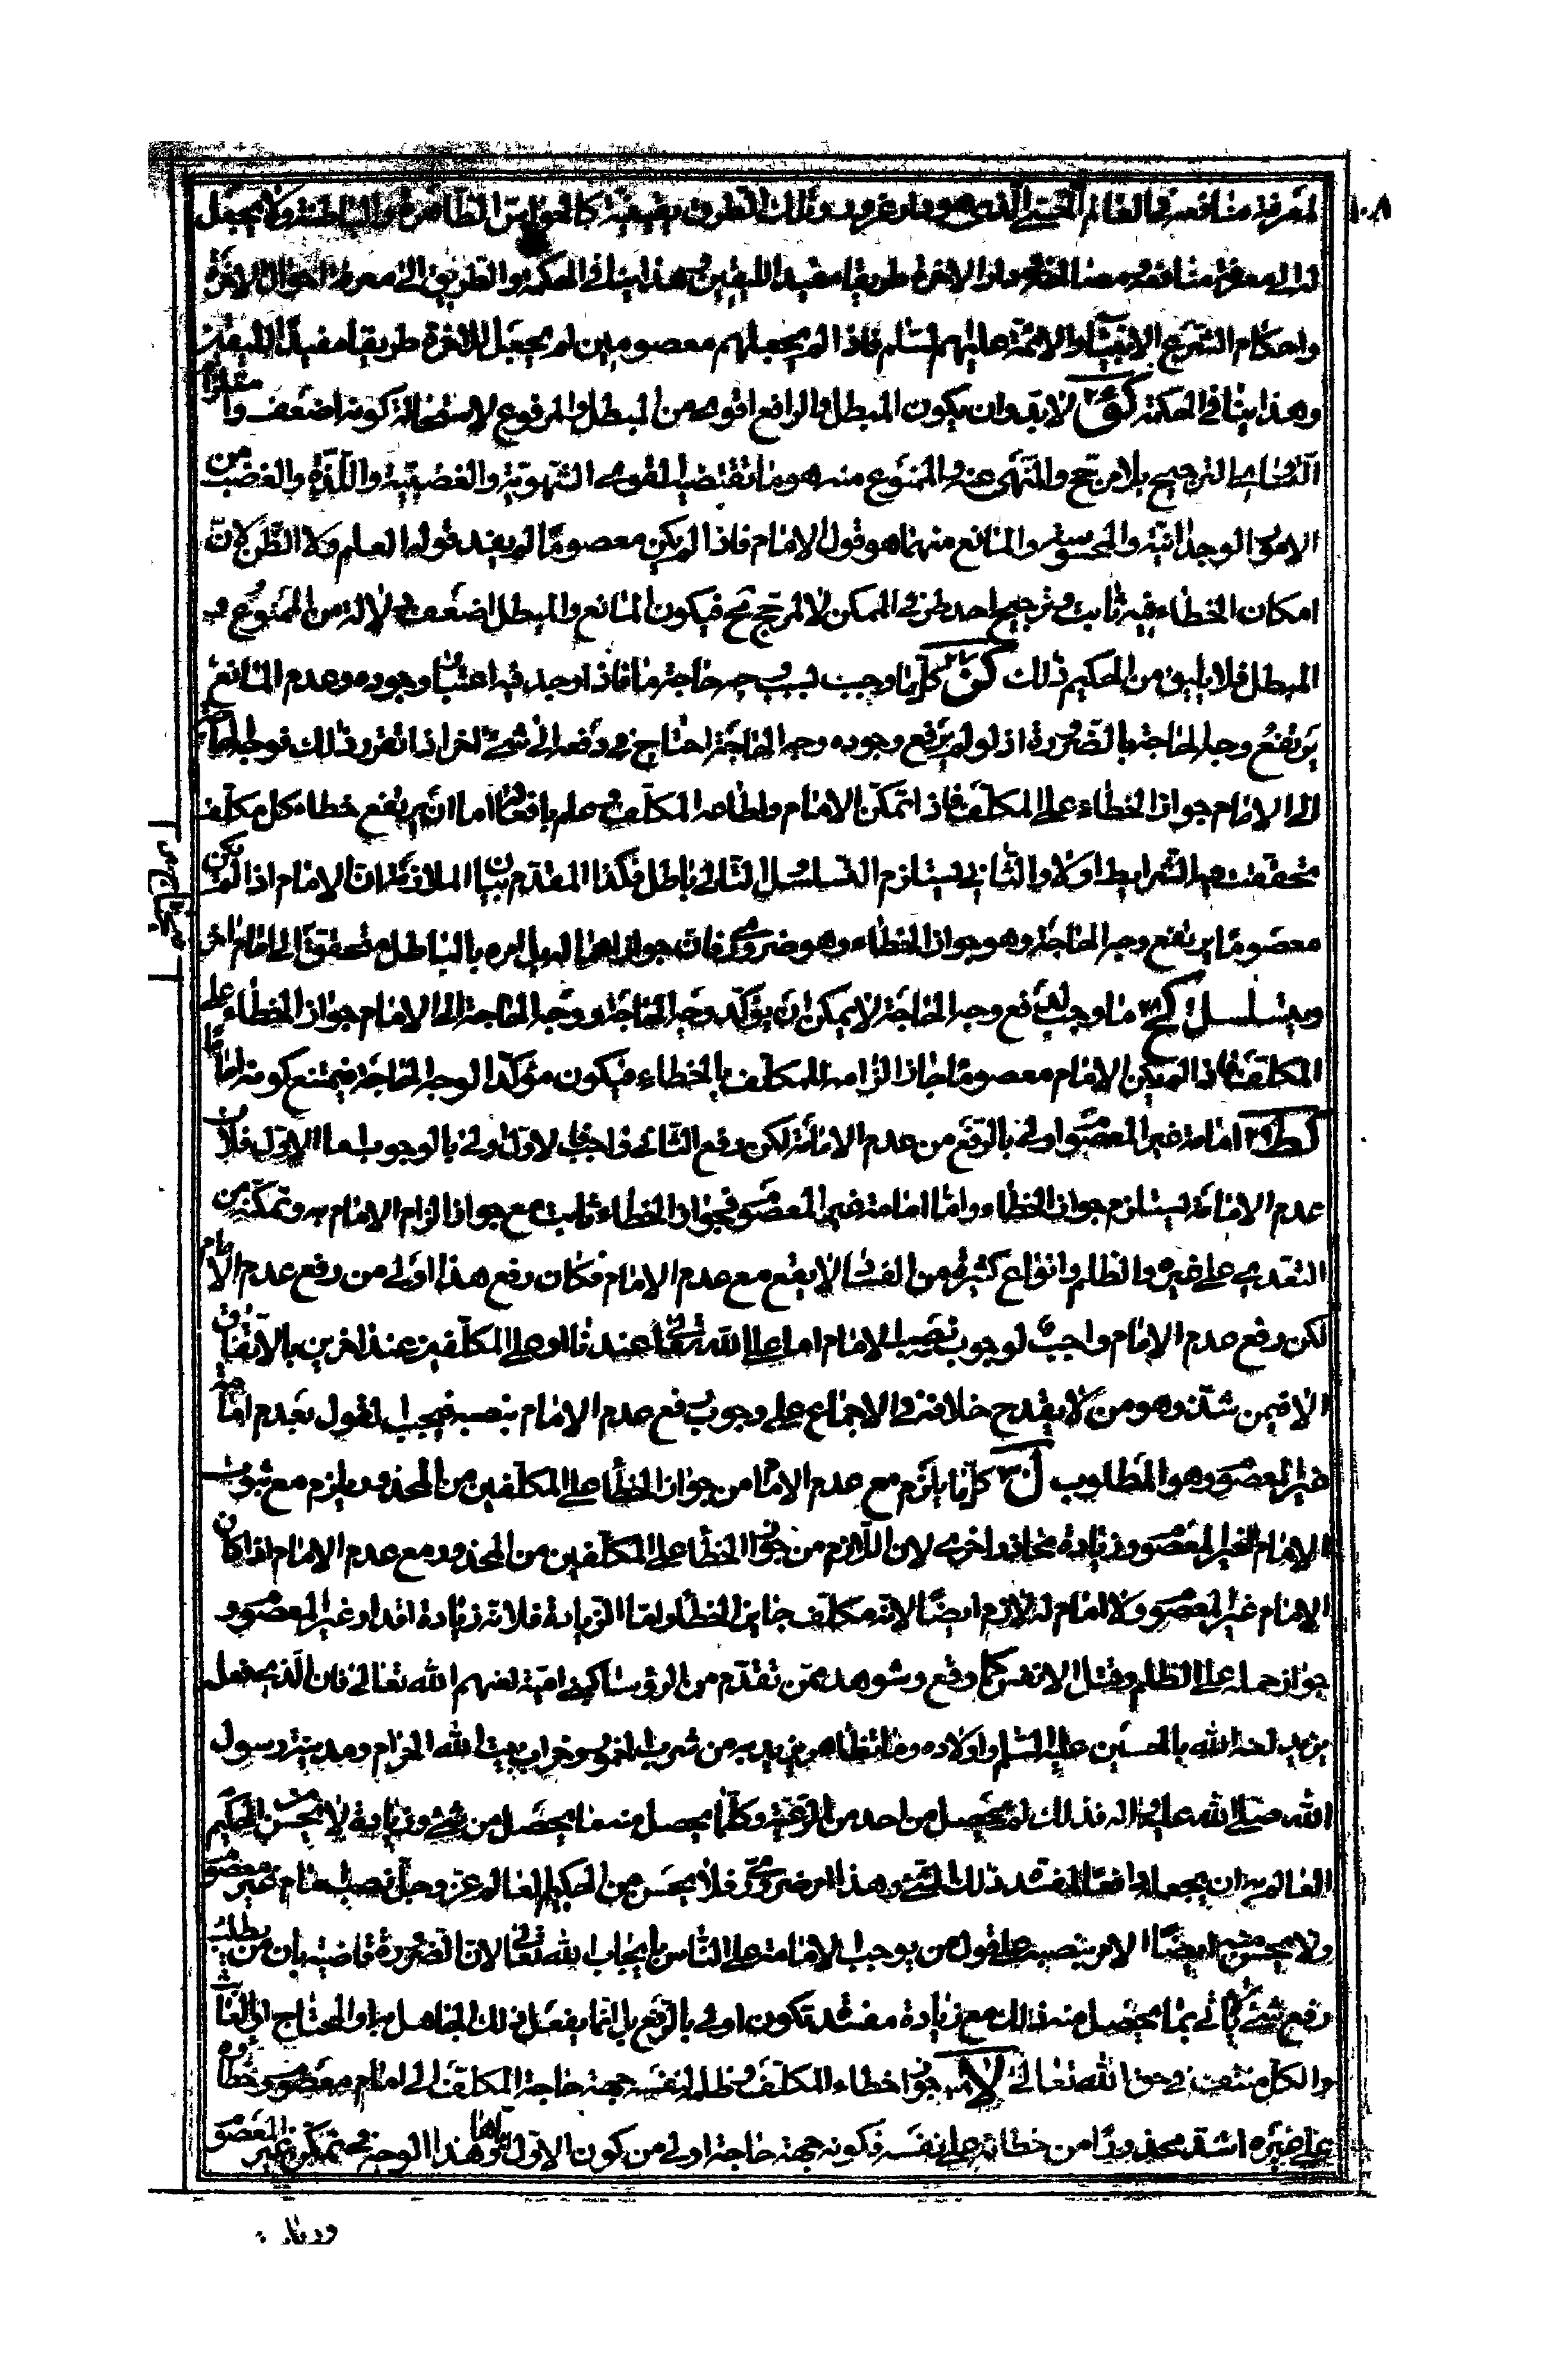 ١٠٨
لمعرفة منافعه في العالم الحسي الذي هو دار غرور وتلك الطرق يقينية كالحواس الظاهرة والباطنة ولا يجعل
له الى معرفة منافعه ومضاره في دار الاخرة طريقا مفيدا لليقين هذا ينافي الحكمة والطريق الى معرفة احوال الاخرة
واحكام الشرع الانبياء والائمة عليهم السلام فاذا لم يجعلهم معصومين لم يجعل للاخرة طريقا مفيدا لليقين
وهذا ينافي الحكمة كو ٢٦ لا بد وان يكون المبطل والرافع اقوى من المبطل والمرفوع لاستحالة كونه اضعف و مقاوما
الترجيح بلا مرجح والمنهى عنه والممنوع منه هو ما تقتضيه القوى الشهوية والغضبية واللذة والغضب من
الامور الوجدانية والمحسوسة والمانع منها هو قول الامام فاذا لم يكن معصوما لم يفد قوله العلم ولا الظن لان
امكان الخطاء فيه ثابت وترجيح احد طرفي الممكن لا لمرجح مح فيكون المانع والمبطل اضعف دلالة من الممنوع و
المبطل فلا يليق من الحكيم ذلك كز ٢٧ كل ما وجب لسبب جهة حاجة ما فاذا وجد فيه اعتبار وجوده وعدم المانع
يرتفع وجه الحاجة بالضرورة اذ لو لم يرتفع وجوده وجه الحاجة احتاج في دفعه الى شئ اخر اذا تقرر ذلك فوجه الحاجة
الى الامام جواز الخطاء على المكلف فاذا تمكن الامام واطاعه المكلف وعلم باوقعها اما ان يرتفع خطاء كل مكلف
تحققت فيه الشرايط اولا والثاني يستلزم التسلسل والتالي باطل فكذا المقدم بيان الملازمة ان الامام اذا لم يكن
معصوما لم يرتفع وجه الحاجة وهو جواز الخطاء وهو ضروري فان جواز اهماله بل امره بالباطل متحقق الى امام اخر
ويتسلسل كح ٢٨ ما وجب لرفع وجه الحاجة لا يمكن ان يؤكد وجه الحاجة ووجه الحاجة الى الامام جواز الخطاء على
المكلف فاذا لم يكن الامام معصوما جاز الزامه للمكلف بالخطاء فيكون مؤكدا لوجه الحاجة فيمتنع كونه اماما
كط ٢٩ امامة غير المعصوم اولى بالرفع من عدم الامامة لكن رفع الثاني واجب فالاول اولى بالوجوب اما الاول فلان
عدم الامامة يستلزم جواز الخطاء واما امامة غير المعصوم فجواز الخطاء ثابت مع جواز الزام الامام به وتمكنه من
التعدي على غيره والظلم وانواع كثيرة من الفساد لا يقع مع عدم الامام فكان رفع هذا اولى من رفع عدم الامام
لكن رفع عدم الامام واجب لوجوب نصب الامام اما على الله تعالى عندنا او على المكلفين عند اخرين بالاتفاق
الا فيمن شذ وهو من لا يقدح خلافه في الاجماع على وجوب رفع عدم الامام بنصبه فيجب القول بعدم امامة
غير المعصوم وهو المطلوب ل ٣٠ كل ما يلزم مع عدم الامام من جواز الخطأ على المكلفين من المحذور يلزم مع ثبوت
الامام الغير المعصوم وزيادة محاذير اخرى لان اللازم من جواز الخطأ على المكلفين من المحذور مع عدم الامام اذا كان
الامام غير المعصوم ولا امام له لازم ايضا لانه مكلف جايز الخطأ واما الزيادة فلانه زيادة اقدار غير المعصوم و
جواز حمله على الظلم وقتل الانفس كما وقع وشوهد ممن تقدم من الرؤساء كبني امية لعنهم الله تعالى فان الذي فعل
يزيد لعنه الله بالحسين عليه السلم واولاده وما تظاهر يزيد به من شرب الخمور وخراب بيت الله الحرام ومدينة رسول
الله صلى الله عليه واله فذلك لم يحصل من احد من الرعية وكل ما يحصل منه ما يحصل من شئ وزيادة لا يحسن من الحكيم
العالم به ان يجعله دافعا لمفسدة ذلك الشئ وهذا امر ضروري فلا يحسن من الحكيم العالم عز وجل نصب امام غير معصوم
ولا يحسن منه ايضا الامر بنصبه على قول من يوجب الامامة على الناس بايجاب الله تعالى لان الضرورة قاضية بان من يطلب
رفع شئ لا ياتي بما يحصل منه ذلك مع زيادة مفسدة تكون اولى بالرفع بل انما يفعل ذلك الجاهل به او المحتاج او العابث
والكل منتف في حق الله تعالى لا ٣١ جواز خطاء المكلف وظلمه لنفسه جهة حاجة المكلف الى امام معصوم وخطاؤه
على غيره اشد محذورا من خطائه على نفسه فكونه جهة حاجة اولى من كون الاول اياها وهذا الوجه في تمكن غير المعصوم